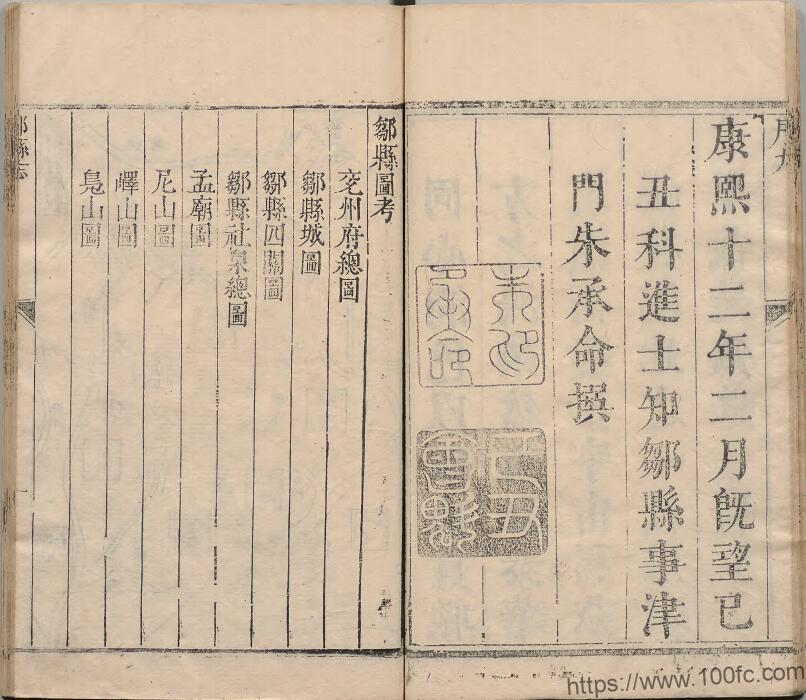 康熙十二年二月旣望己
丑科進士知鄒縣事津
門朱承命撰
鄒縣圖考
兖州府總圖
鄒縣城圖
鄒縣四關圖
鄒縣社泉總圖
孟廟圖
尼山圖
嶧山圖
鳧山圖
鄒縣志
https://www.100fc.com